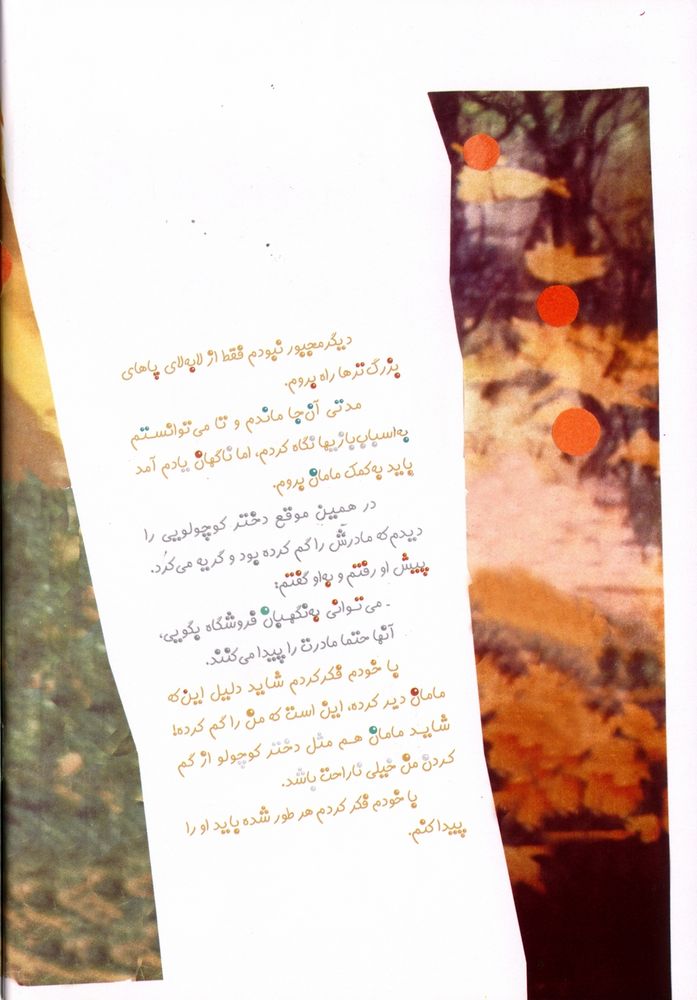 دیگر مجبور نبودم فقط از لابه‌لای پاهای
بزرگ‌ترها راه بروم.
مدتی آن‌جا ماندم و تا می‌توانستم
به‌اسباب‌بازیها نگاه کردم، اما ناگهان یادم آمد
باید به‌کمک مامان بروم.
در همین موقع دختر کوچولویی را
دیدم که مادرش را گم کرده بود و گریه می‌کرد.
پیش او رفتم و به‌او گفتم:
- می‌توانی به‌نگهبان فروشگاه بگویی،
آنها حتما مادرت را پیدا می‌کنند.
با خودم فکر کردم شاید دلیل این‌که
مامان دیر کرده، این است که من را گم کرده!
شاید مامان هم مثل دختر کوچولو از گم
کردن من خیلی ناراحت باشد.
با خودم فکر کردم هر طور شده باید او را
پیدا کنم.